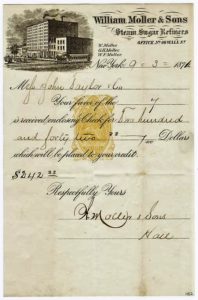 William Moller & Sons
Steam Sugar Refiners
OFFICE Nº 98 WALL ST
W. Moller
G.H. Moller
W.F. Moller
New York 9 - 3 - 1874
Mess John Taylor & Co
Your favor of the 7
is received enclosing Check for Two hundred
and forty two 22/100 Dollars
which will be placed to your credit.
$242 22
Respectfully Yours
W. Moller & Sons